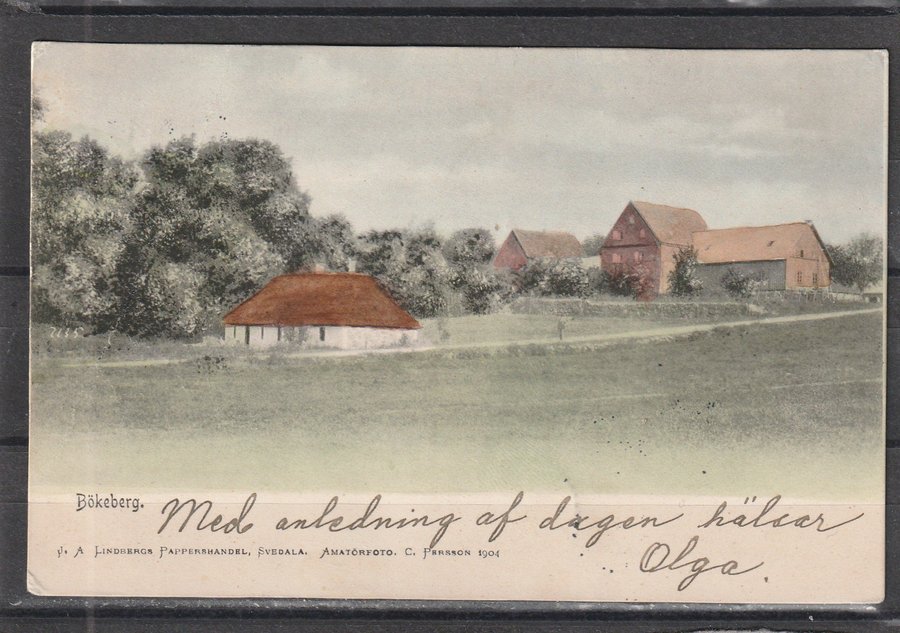 Bökeberg. Med anledning af dagen hälsar
J. A. Lindbergs Pappershandel, Svedala. Amatörfoto. C. Persson 1904
Olga.